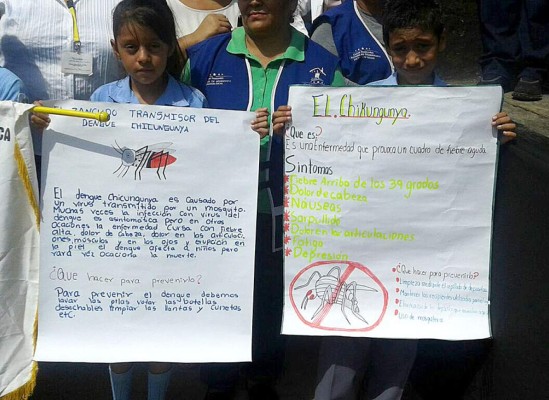 ZANCUDO TRANSMISOR DEL
DENGUE CHICUNGUNYA
EL dengue Chicungunya es Causado por
un virus transmitido por un mosquito.
Muchas veces la infeccion con virus del
dengue es asintomatica pero en otras
Ocaciones la enfermedad Cursa con fiebre
alta, dolor de Cabeza, dolor en las articulaci
ones,músculos y en los ojos y erupción en
la piel el dengue afecta a niños pero
rara vez Ocaciona la muerte.
¿Que hacer para prevenirlo?
Para prevenir el dengue debemos
lavar las pilas votar las botellas
desechables limpiar las llantas y cunetas
etc.
EL Chikungunya
¿Que es?
Es una Enfermedad que provoca un cuadro de fiebre aguda
Sintomas
Fiebre Arriba de los 39 grados
Dolor de cabeza
Náuseas
Sarpullido
Dolor en las articulaciones
Fatiga
Depresión
¿Qué hacer para prevenirlo?
Uso de mosquitero